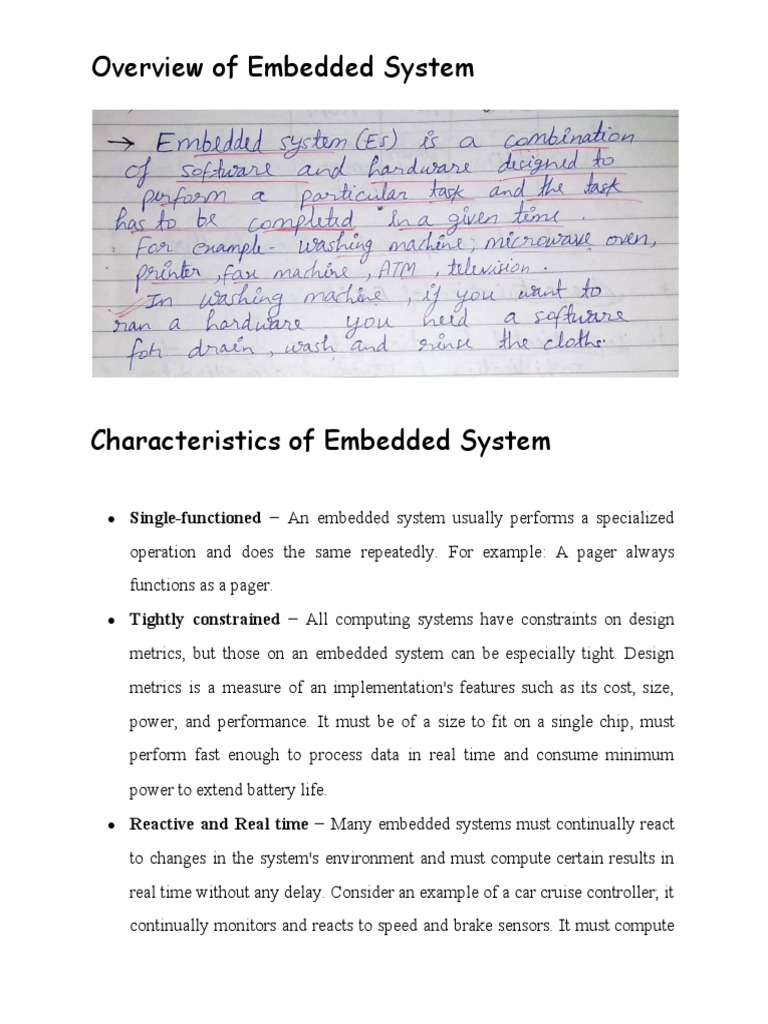 Overview of Embedded System
→ Embedded system (Es) is a combination
of software and hardware designed to
perform a particular task and the task
has to be completed in a given time.
For example - washing machine, microwave oven,
printer, fax machine, ATM, television.
In washing machine, if you want to
ran a hardware you need a software
for drain, wash and rinse the cloths.
Characteristics of Embedded System
• Single-functioned − An embedded system usually performs a specialized
operation and does the same repeatedly. For example: A pager always
functions as a pager.
• Tightly constrained − All computing systems have constraints on design
metrics, but those on an embedded system can be especially tight. Design
metrics is a measure of an implementation's features such as its cost, size,
power, and performance. It must be of a size to fit on a single chip, must
perform fast enough to process data in real time and consume minimum
power to extend battery life.
• Reactive and Real time − Many embedded systems must continually react
to changes in the system's environment and must compute certain results in
real time without any delay. Consider an example of a car cruise controller; it
continually monitors and reacts to speed and brake sensors. It must compute